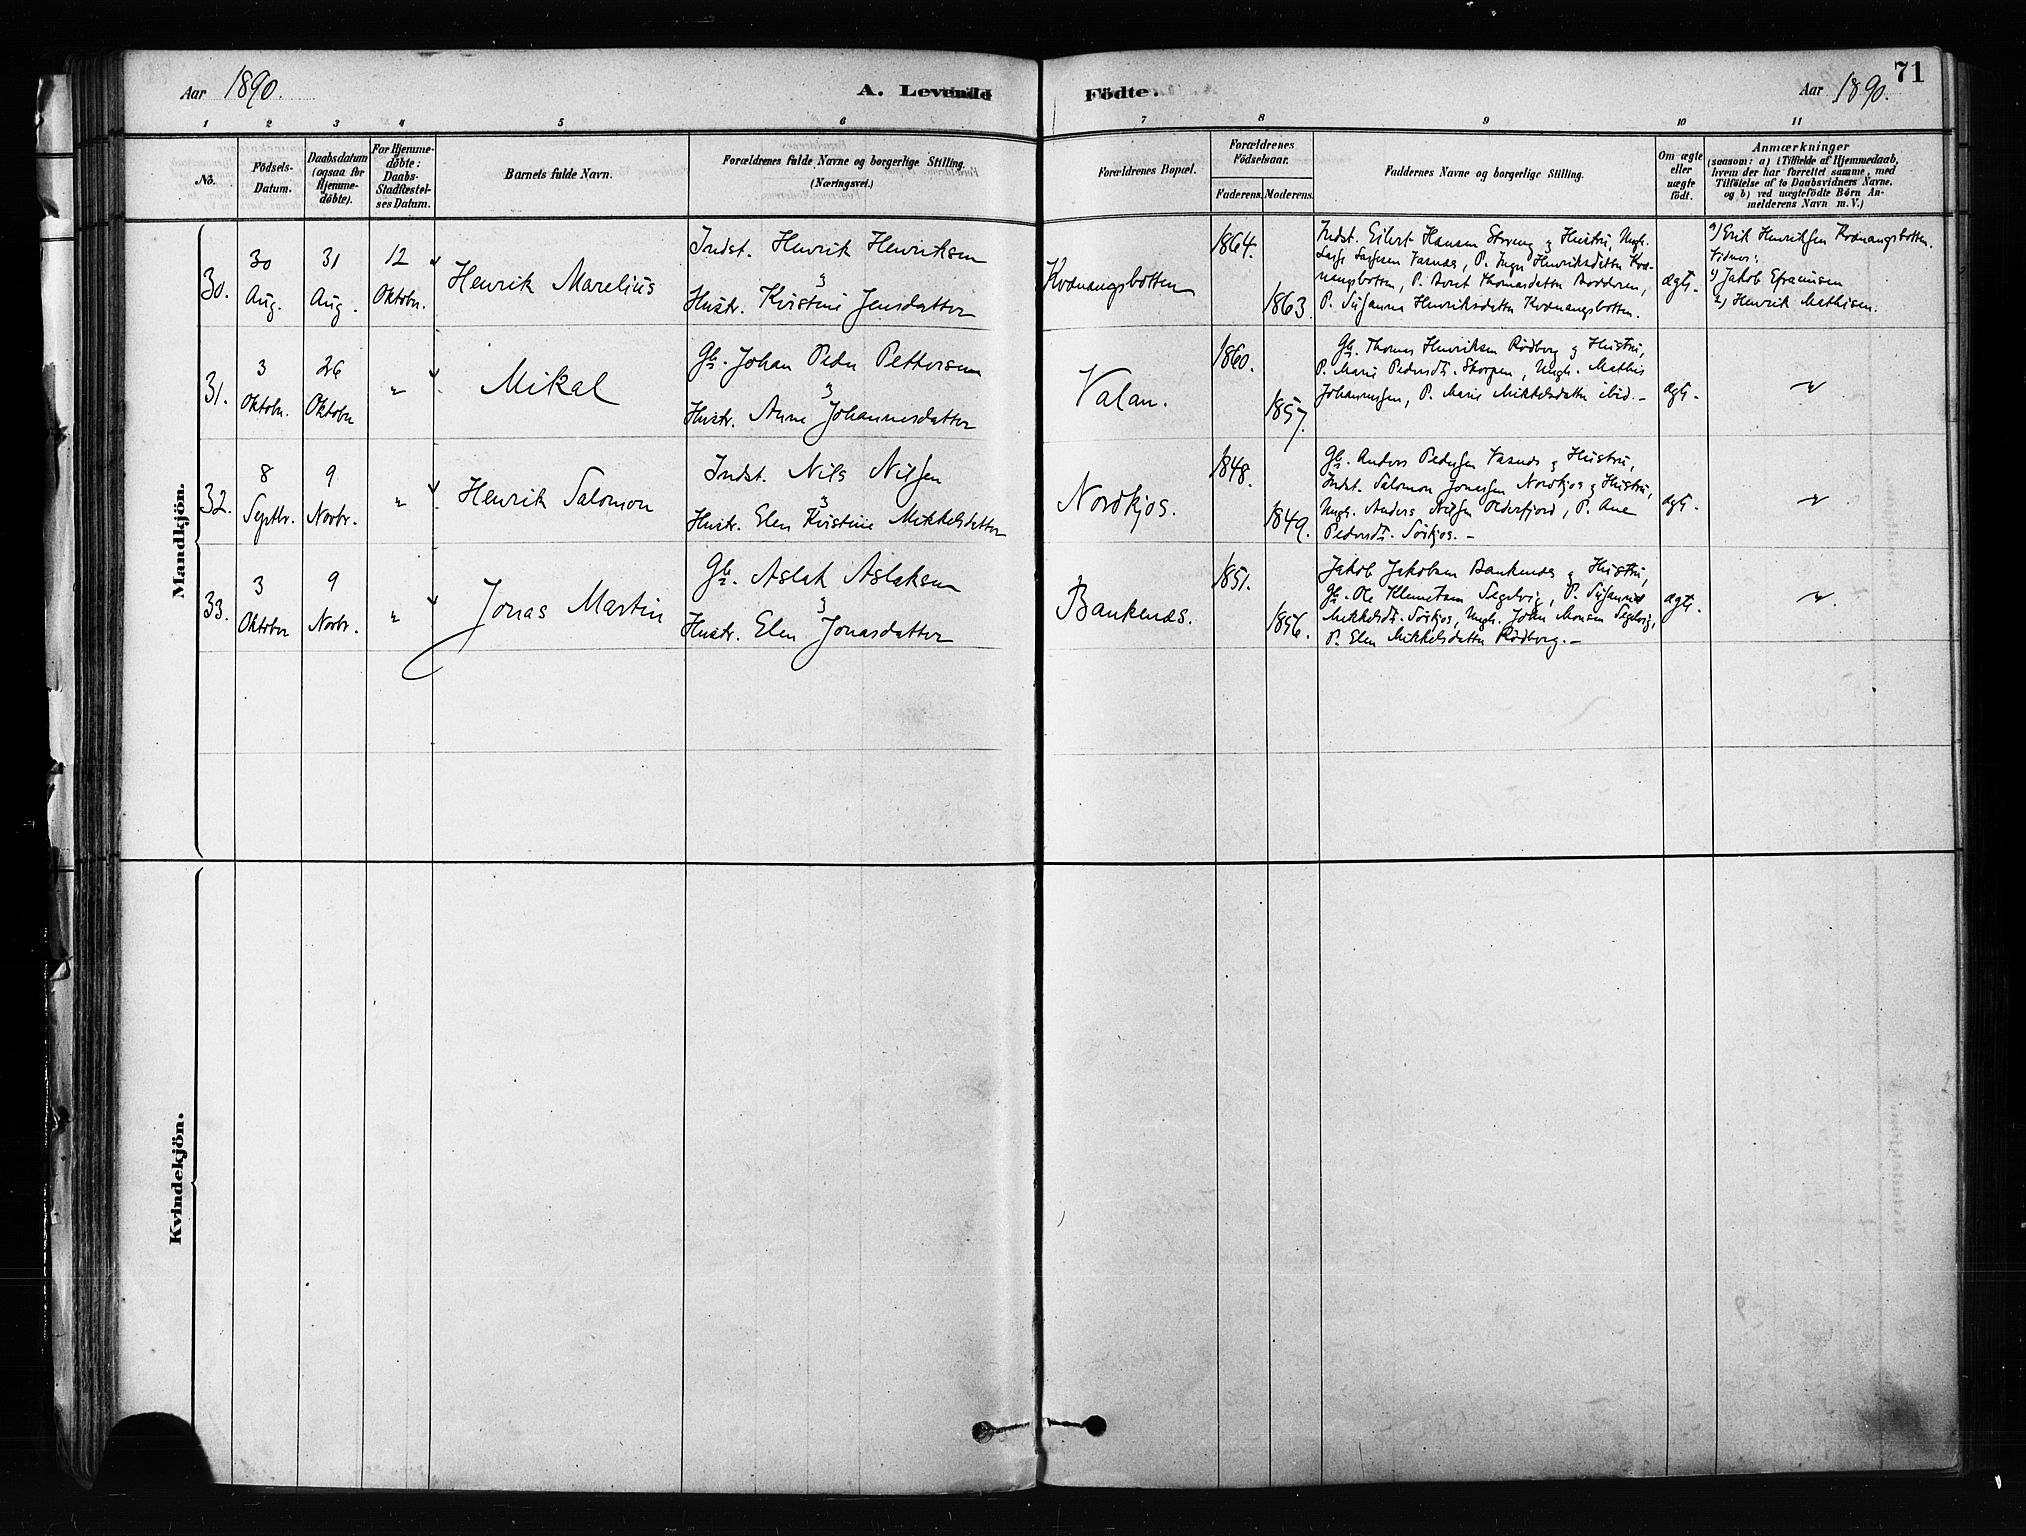 Aar 1890.
A. Levende
Födte.
Aar 1890.
71
1 2 3 4 5 6 7 8 9 10 11
No.
Födsels-
Datum.
Daabsdatum
(ogsaa for
Hjemme-
döbte).
For Hjemme-
döbte:
Daabs-
Stadfæstel-
ses Datum.
Barnets fulde Navn.
Forældrenes fulde Navne og borgerlige Stilling.
(Næringsvei.)
Forældrenes Bopæl.
Forældrenes
Födselsaar.
Faderens. Moderens.
Faddernes Navne og borgerlige Stilling.
Om ægte
eller
uægte
födt.
Anmærkninger
(saasom: a) i Tilfælde af Hjemmedaab,
hvem der har forrettet samme, med
Tilföielse af to Daabsvidners Navne,
og b) ved uægtefödte Börn An-
melderens Navn m. V.)
Mandkjön.
30.
30
Aug.
31
Aug.
12
Oktobr.
Henrik Marelius
Indst. Henrik Henriksen
&
Hustr. Kristine Jensdatter
Kvænangsbotten
1864.
1863.
Indst. Eilert Hansen Storeng og Hustru, Ungk.
P. Inger Henriksdatter Kvæ-
nangsbotten, P. Beret Thomasdatter
P. Susanna Henriksdatter Kvænangsbotten.
ægte.
a) Erik Henriksen Kvænangsbotten.
Vidner:
1) Jakob Efraimsen
2) Henrik Mathisen.
31.
3
Oktobr.
26
Oktobr
"
Mikal
Gb. Johan Peder Pettersen
&
Hustr. Anne Johannesdatter
Valan.
1860.
1857.
Gb. Thomas Henriksen Rödberg og Hustru,
P. Marie Pedersdt. Skorpen, Ungk. Mathis
Johannesen, P. Marie Mikkelsdatter ibid. -
ægte.
"
32.
8
Septbr.
9
Novbr.
"
Henrik Salomon
Indst. Nils Nilsen
&
Hustr. Elen Kristine Mikkelsdatter
Nordkjos.
1848.
1849.
Gb. Anders Pedersen og Hustru,
Indst. Salomon Jonassen Nordkjos og Hustru,
Ungk. Anders Nilsen Olderfjord, P. Ane
Pedersdt. Sörkjos. -
ægte.
"
33.
3
Oktober
9
Novbr.
"
Jonas Martin
Gb. Aslak Aslaksen
&
Hustr. Elen Jonasdatter
Bankenæs.
1851.
1856.
Jakob Jakobsen Bankenæs og Hustru,
Gb. Ole Klemetsen Segelvig, P. Susanna
Mikkelsdt. Sörkjos, Ungk. Johan Monsen Segelvig,
P. Elen Mikkelsdatter Rödberg. -
ægte.
"
Kvindekjön.